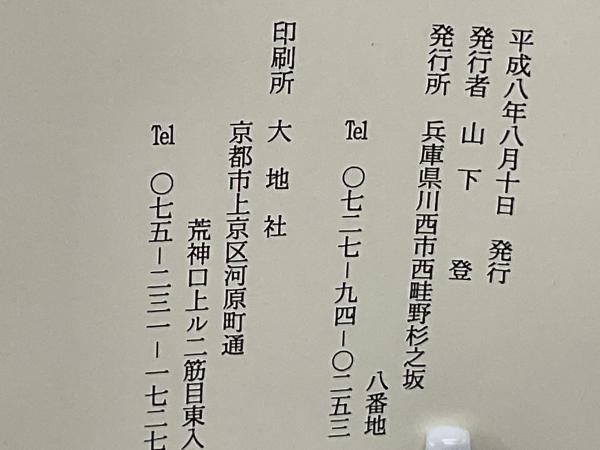 平成八年八月十日 発行
発行者 山下 登
発行所 兵庫県川西市西畦野杉之坂
八番地
Tel 〇七二七ー九四ー〇二五三
印刷所 大地社
京都市上京区河原町通
荒神口上ル二筋目東入
Tel 〇七五ー二三一ー一七二七